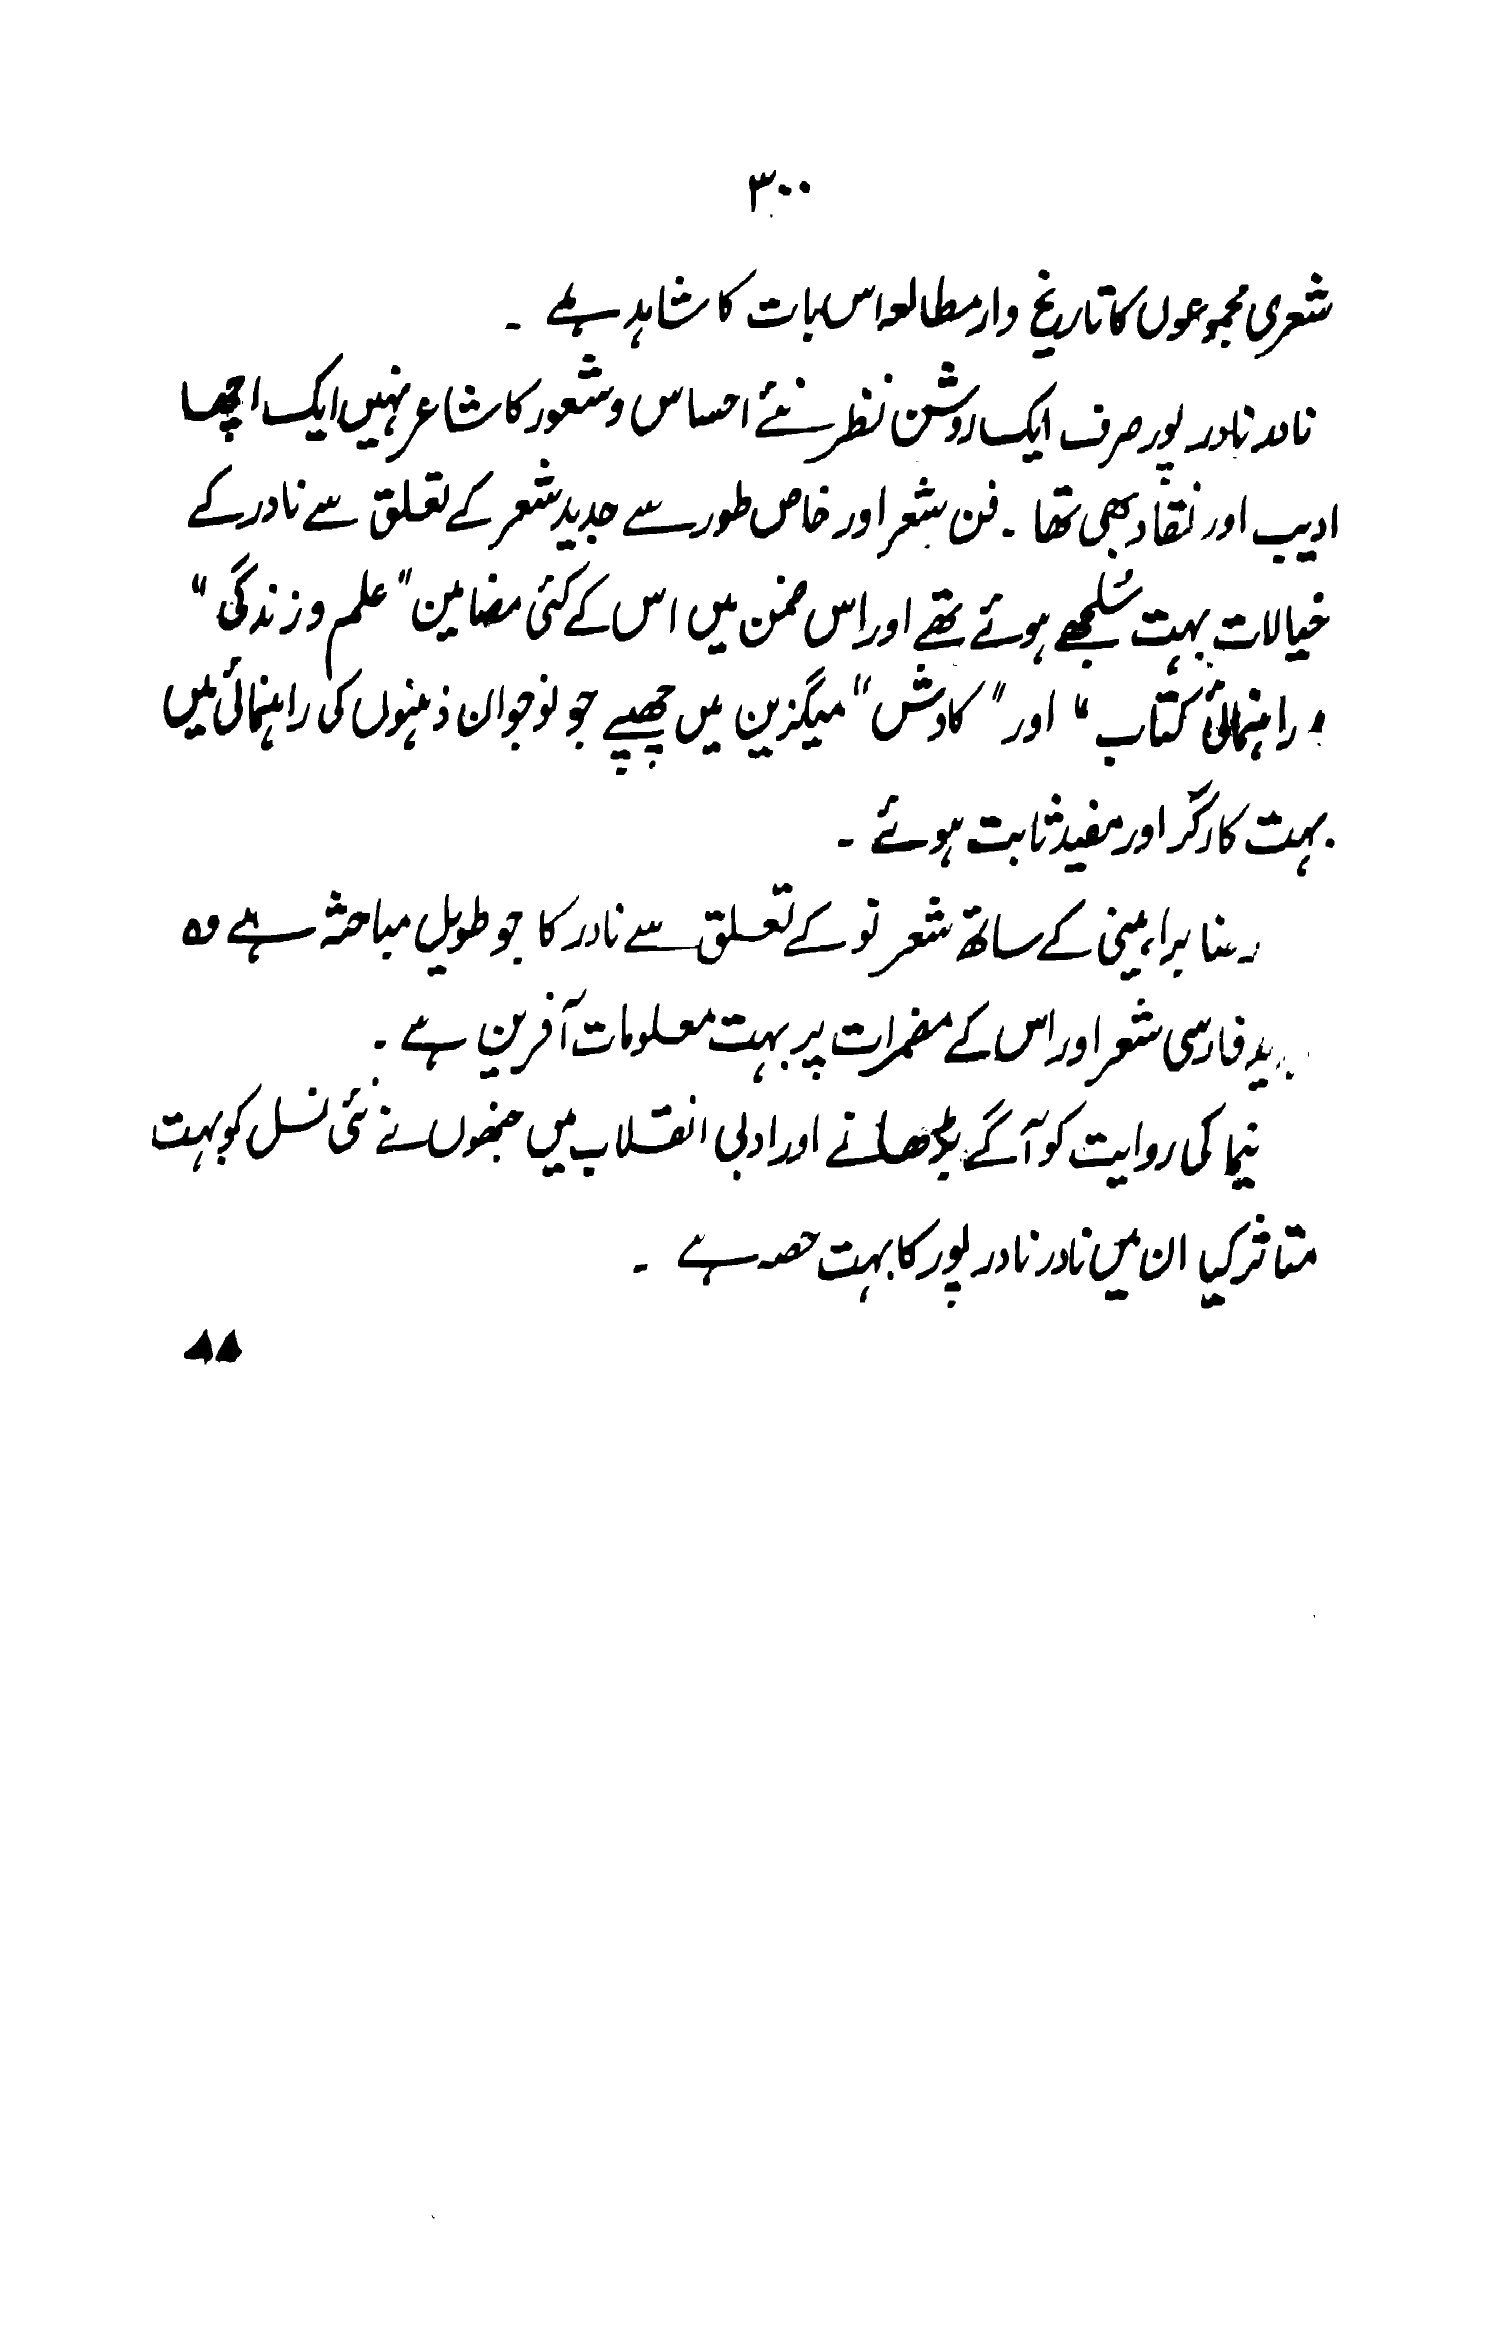 ۳۰۰
شعری مجموعوں کا تاریخ وار مطالعہ اس بات کا شاہد ہے ۔
نادر نادر پور صرف ایک روشن نظر نئے احساس و شعور کا شاعر نہیں ایک اچھا
ادیب اور نقاد بھی تھا ۔ فن شعر اور خاص طور سے جدید شعر کے تعلق سے نادر کے
خیالات بہت سُلجھے ہوئے تھے اور اس ضمن میں اس کے کئی مضامین "علم و زندگی"
"راہنمائی کتاب" اور "کاوش" میگزین میں چھپے جو نوجوان ذہنوں کی راہنمائی میں
بہت کارگر اور مفید ثابت ہوئے ۔
براہینی کے ساتھ شعر نو کے تعلق سے نادر کا جو طویل مباحثہ ہے وہ
فارسی شعر اور اس کے مضمرات پر بہت معلومات آفرین ہے ۔
نیما کی روایت کو آگے بڑھانے اور ادبی انقلاب میں جنھوں نے نئی نسل کو بہت
متاثر کیا ان میں نادر نادر پور کا بہت حصہ ہے ۔